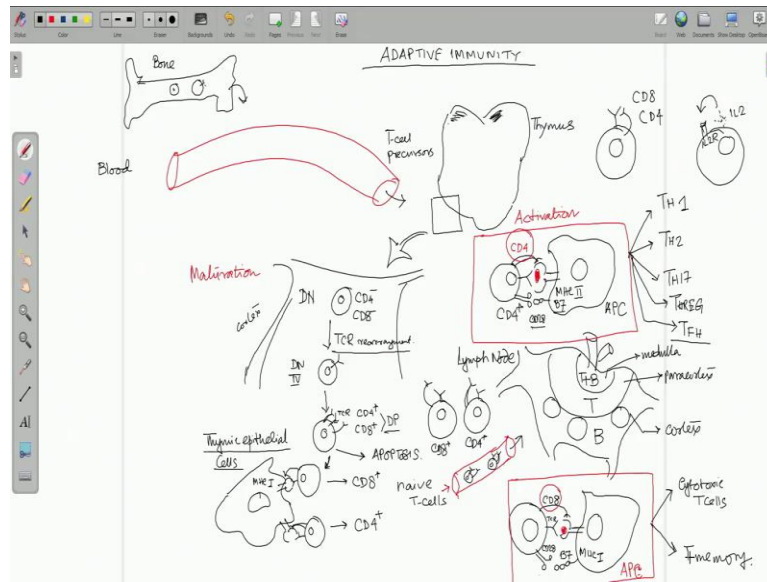 Stylus
Color
Line
Eraser
Backgrounds
Undo
Redo
Pages
Previous
Next
Erase
Board
Web
Documents
Show Desktop
OpenBoard
ADAPTIVE IMMUNITY
Bone
Blood
T-cell
precursors
Thymus
CD8
CD4
IL2
IL2R
Activation
CD4
CD4+
CD28
B7
MHC II
APC
TH1
TH2
TH17
TREG
TFH
Maturation
cortex
DN
CD4-
CD8-
TCR rearrangement
DN
IV
TCR
CD4+
CD8+
DP
APOPTOSIS
Thymic epithelial
Cells
MHC I
CD8+
CD4+
Lymph Node
CD8+
CD4+
naive
T-cells
T+B
T
B
medulla
paracortex
cortex
CD8
TCR
CD28
B7
MHC I
APC
Cytotoxic
T cells
T memory.